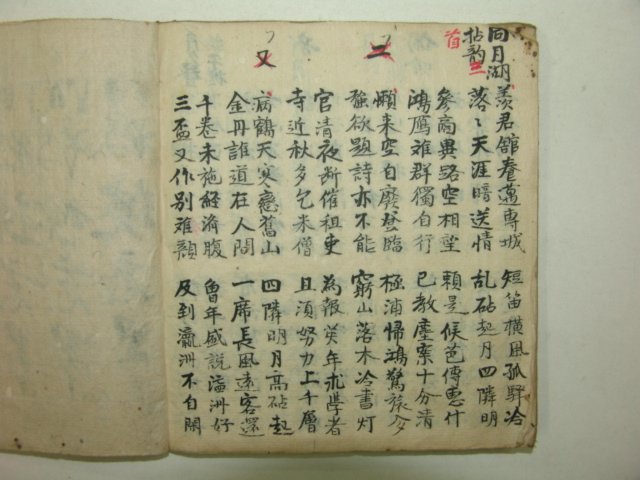 向月湖
拈韵二首
羨君舘養蔿專城 短笛橫風孤驛冷
落〻天涯暗送情 乱砧起月四隣明
參商異路空相望 賴是候芭傳惠什
鴻雁难群獨自行 已教塵案十分清
二
懶來空自廢登臨 極浦帰鴻驚旅夢
強欲題詩亦不能 窮山落木冷書灯
官清夜断催租吏 為報癸年求學者
寺近秋多乞米僧 且須努力上千層
又
病鶴天寒戀舊山 四隣明月高砧起
金丹誰道在人間 一席長風遠客還
千卷未施經濟腹 魯年盛說瀛洲好
三盃又作別难顏 及到瀛洲不自閑